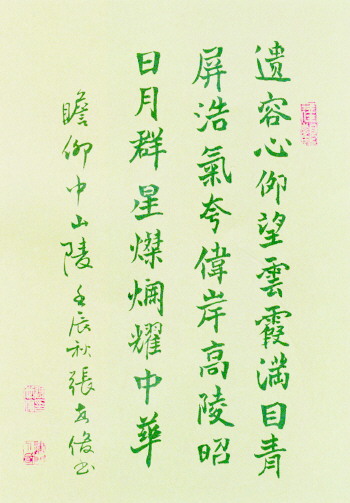 遺容心仰望雲霞滿目青
屏浩氣夸偉岸高陵昭
日月群星燦斕耀中華
瞻仰中山陵壬辰秋張友俊书